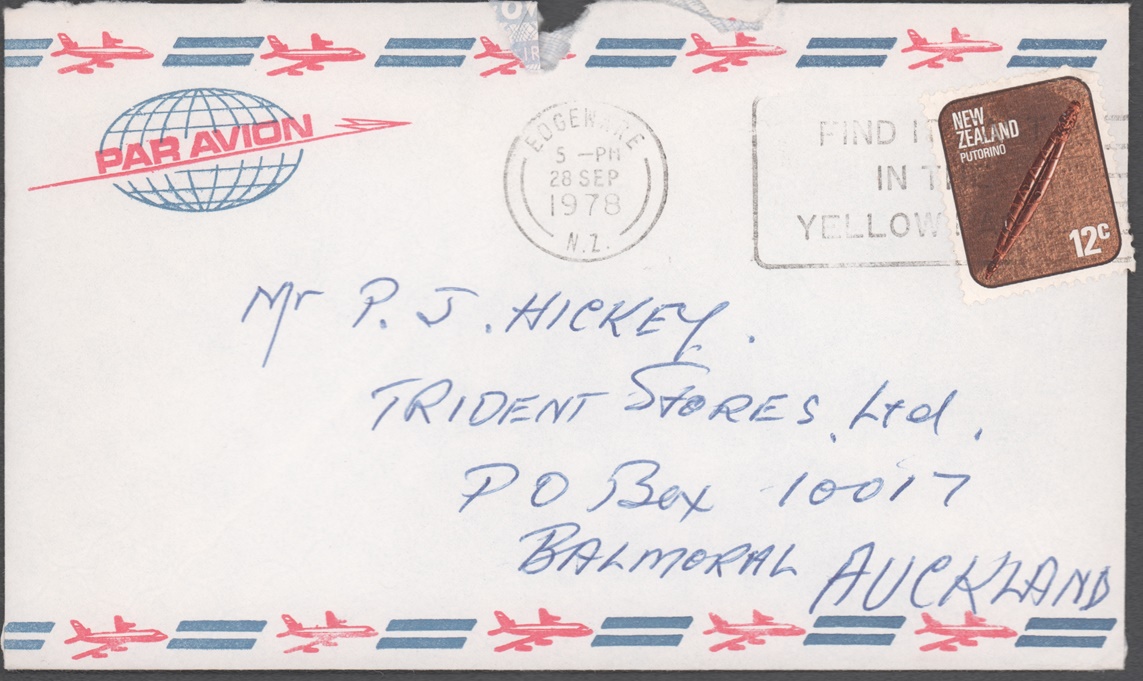 PAR AVION
EDGEWARE
5 -PM
28 SEP
1978
N.Z.
FIND I
IN T
YELLOW
NEW
ZEALAND
PUTORINO
12c
Mr P. J. HICKEY.
TRIDENT STORES, Ltd.
PO Box 10017
BALMORAL AUCKLAND